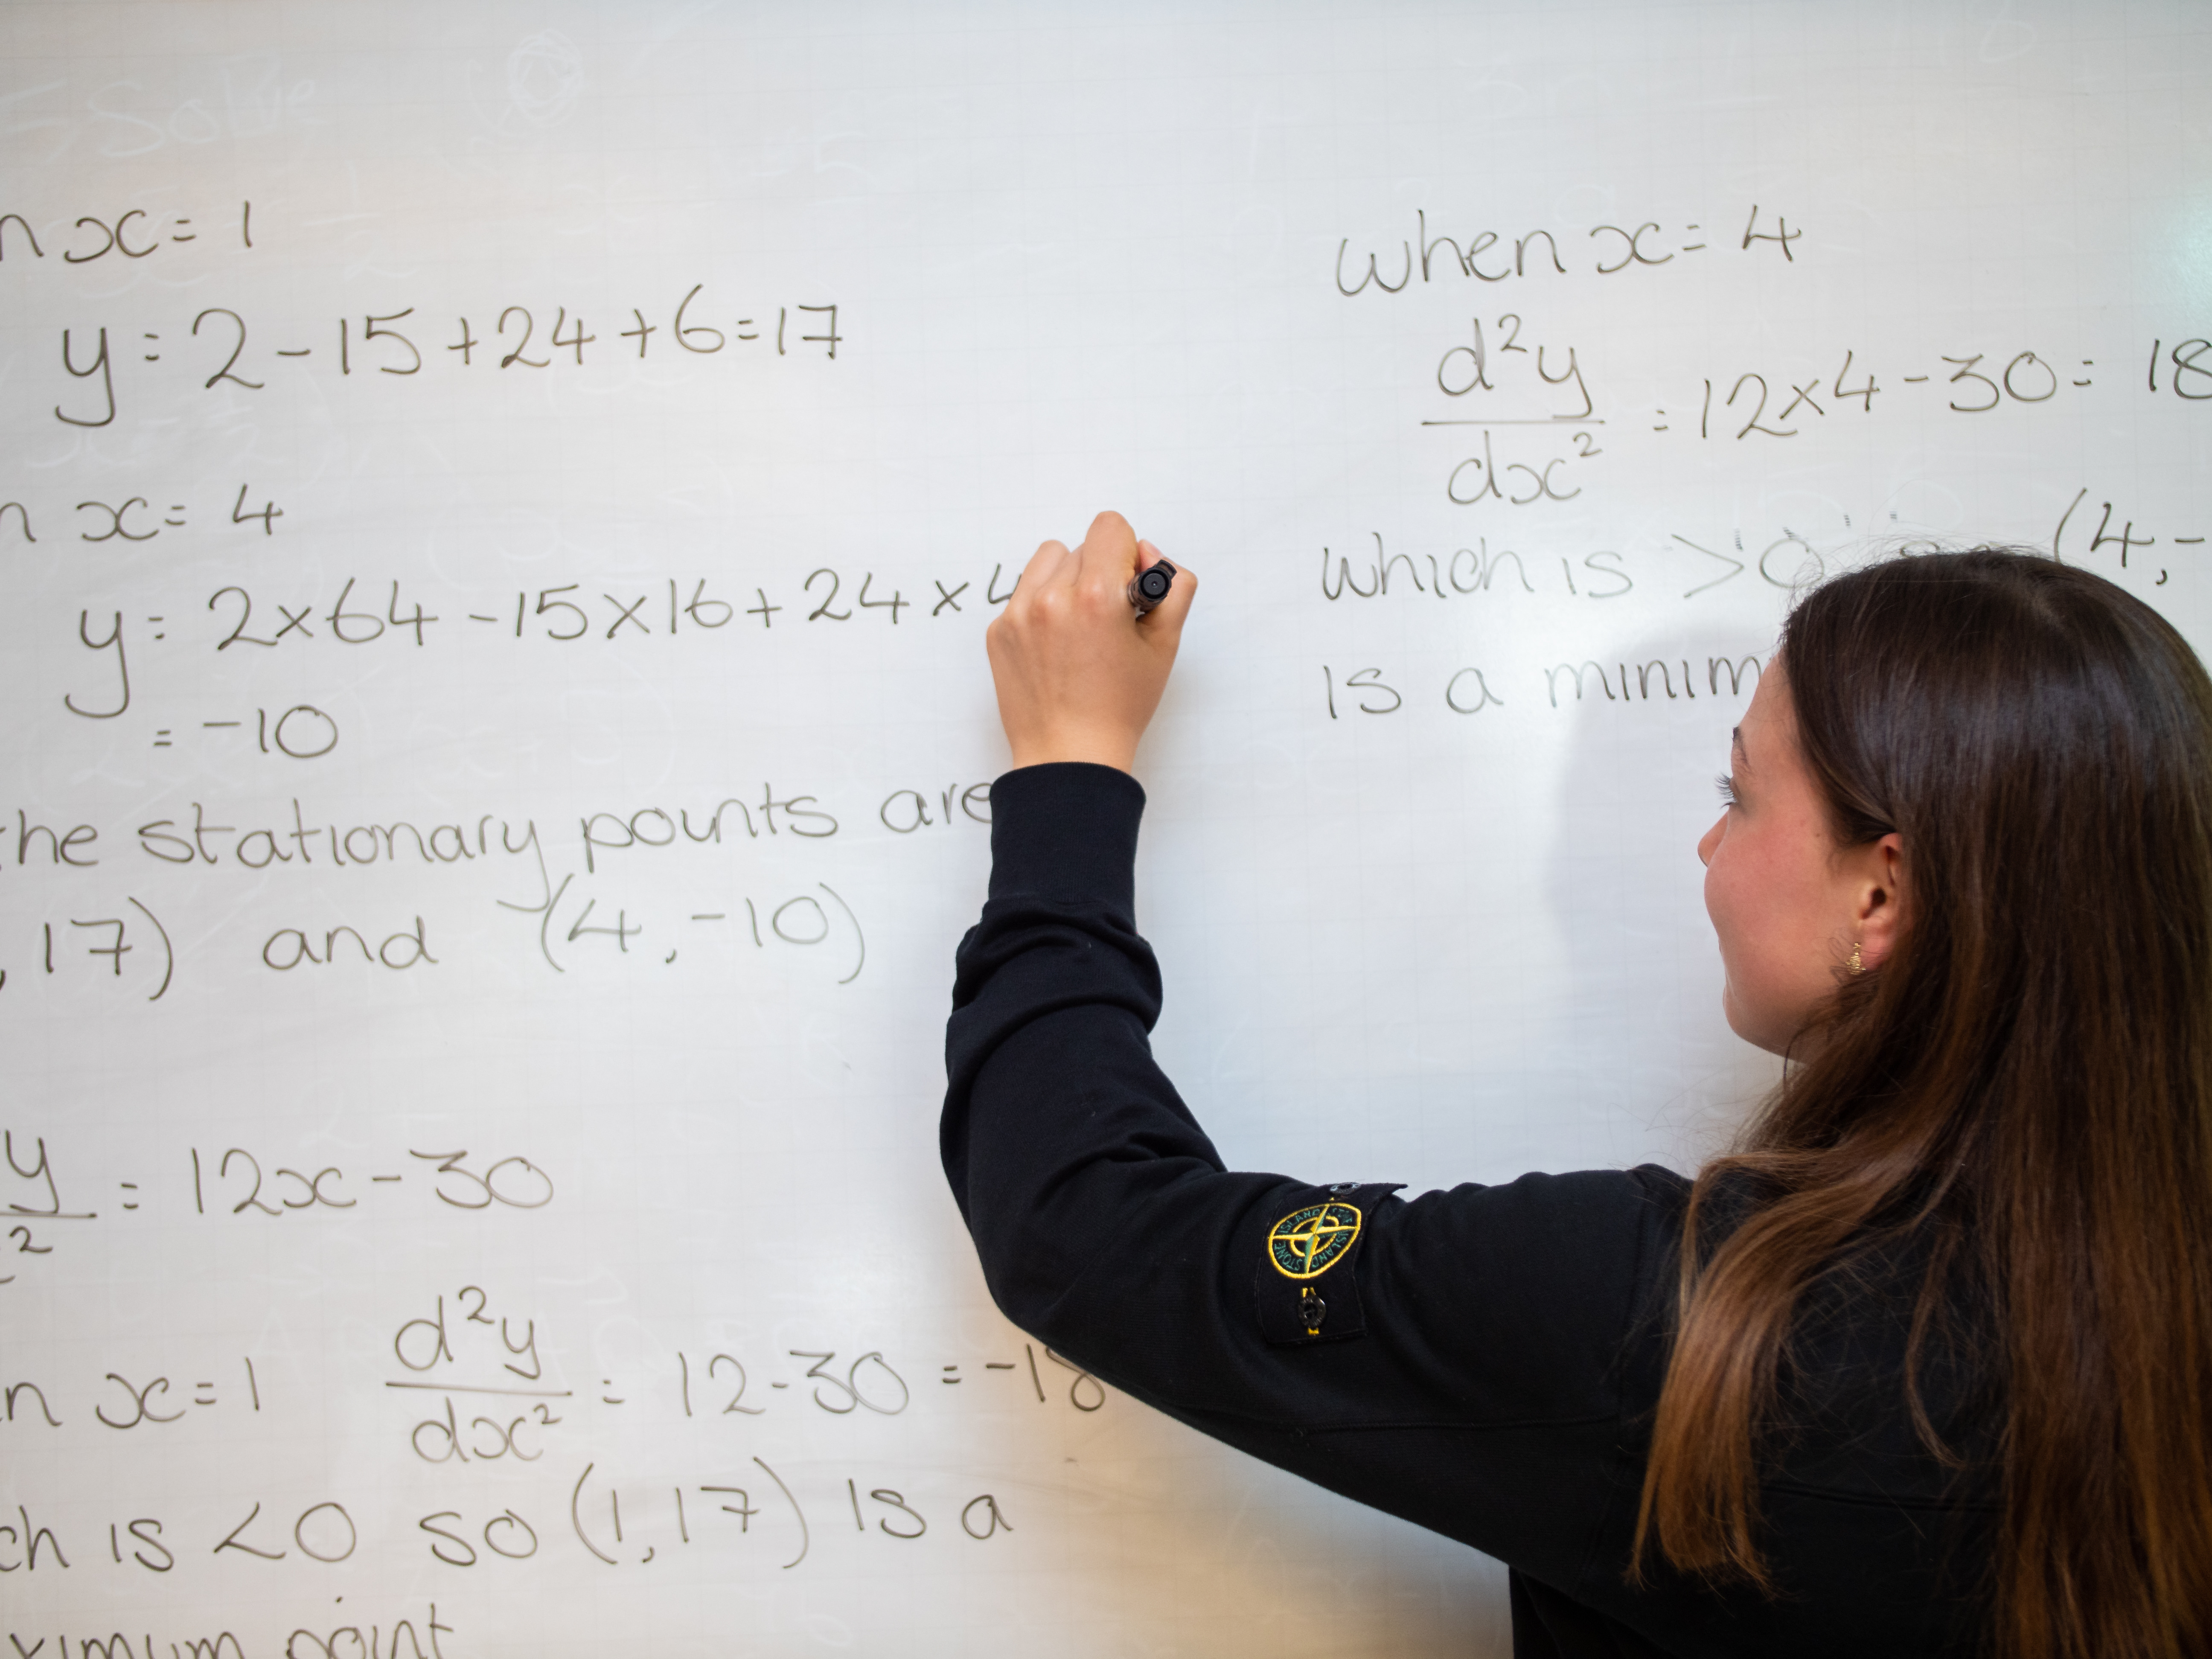 n x = 1
y = 2 - 15 + 24 + 6 = 17
n x = 4
y = 2 × 64 - 15 × 16 + 24 × 4
= -10
the stationary points are
, 17) and (4, -10)
y/2 = 12x - 30
n x = 1 d²y/dx² = 12 - 30 = -18
ch is < 0 so (1, 17) is a
ximum point
when x = 4
d²y/dx² = 12 × 4 - 30 = 18
which is > 0 so (4, -
is a minim
STONE ISLAND
Solve